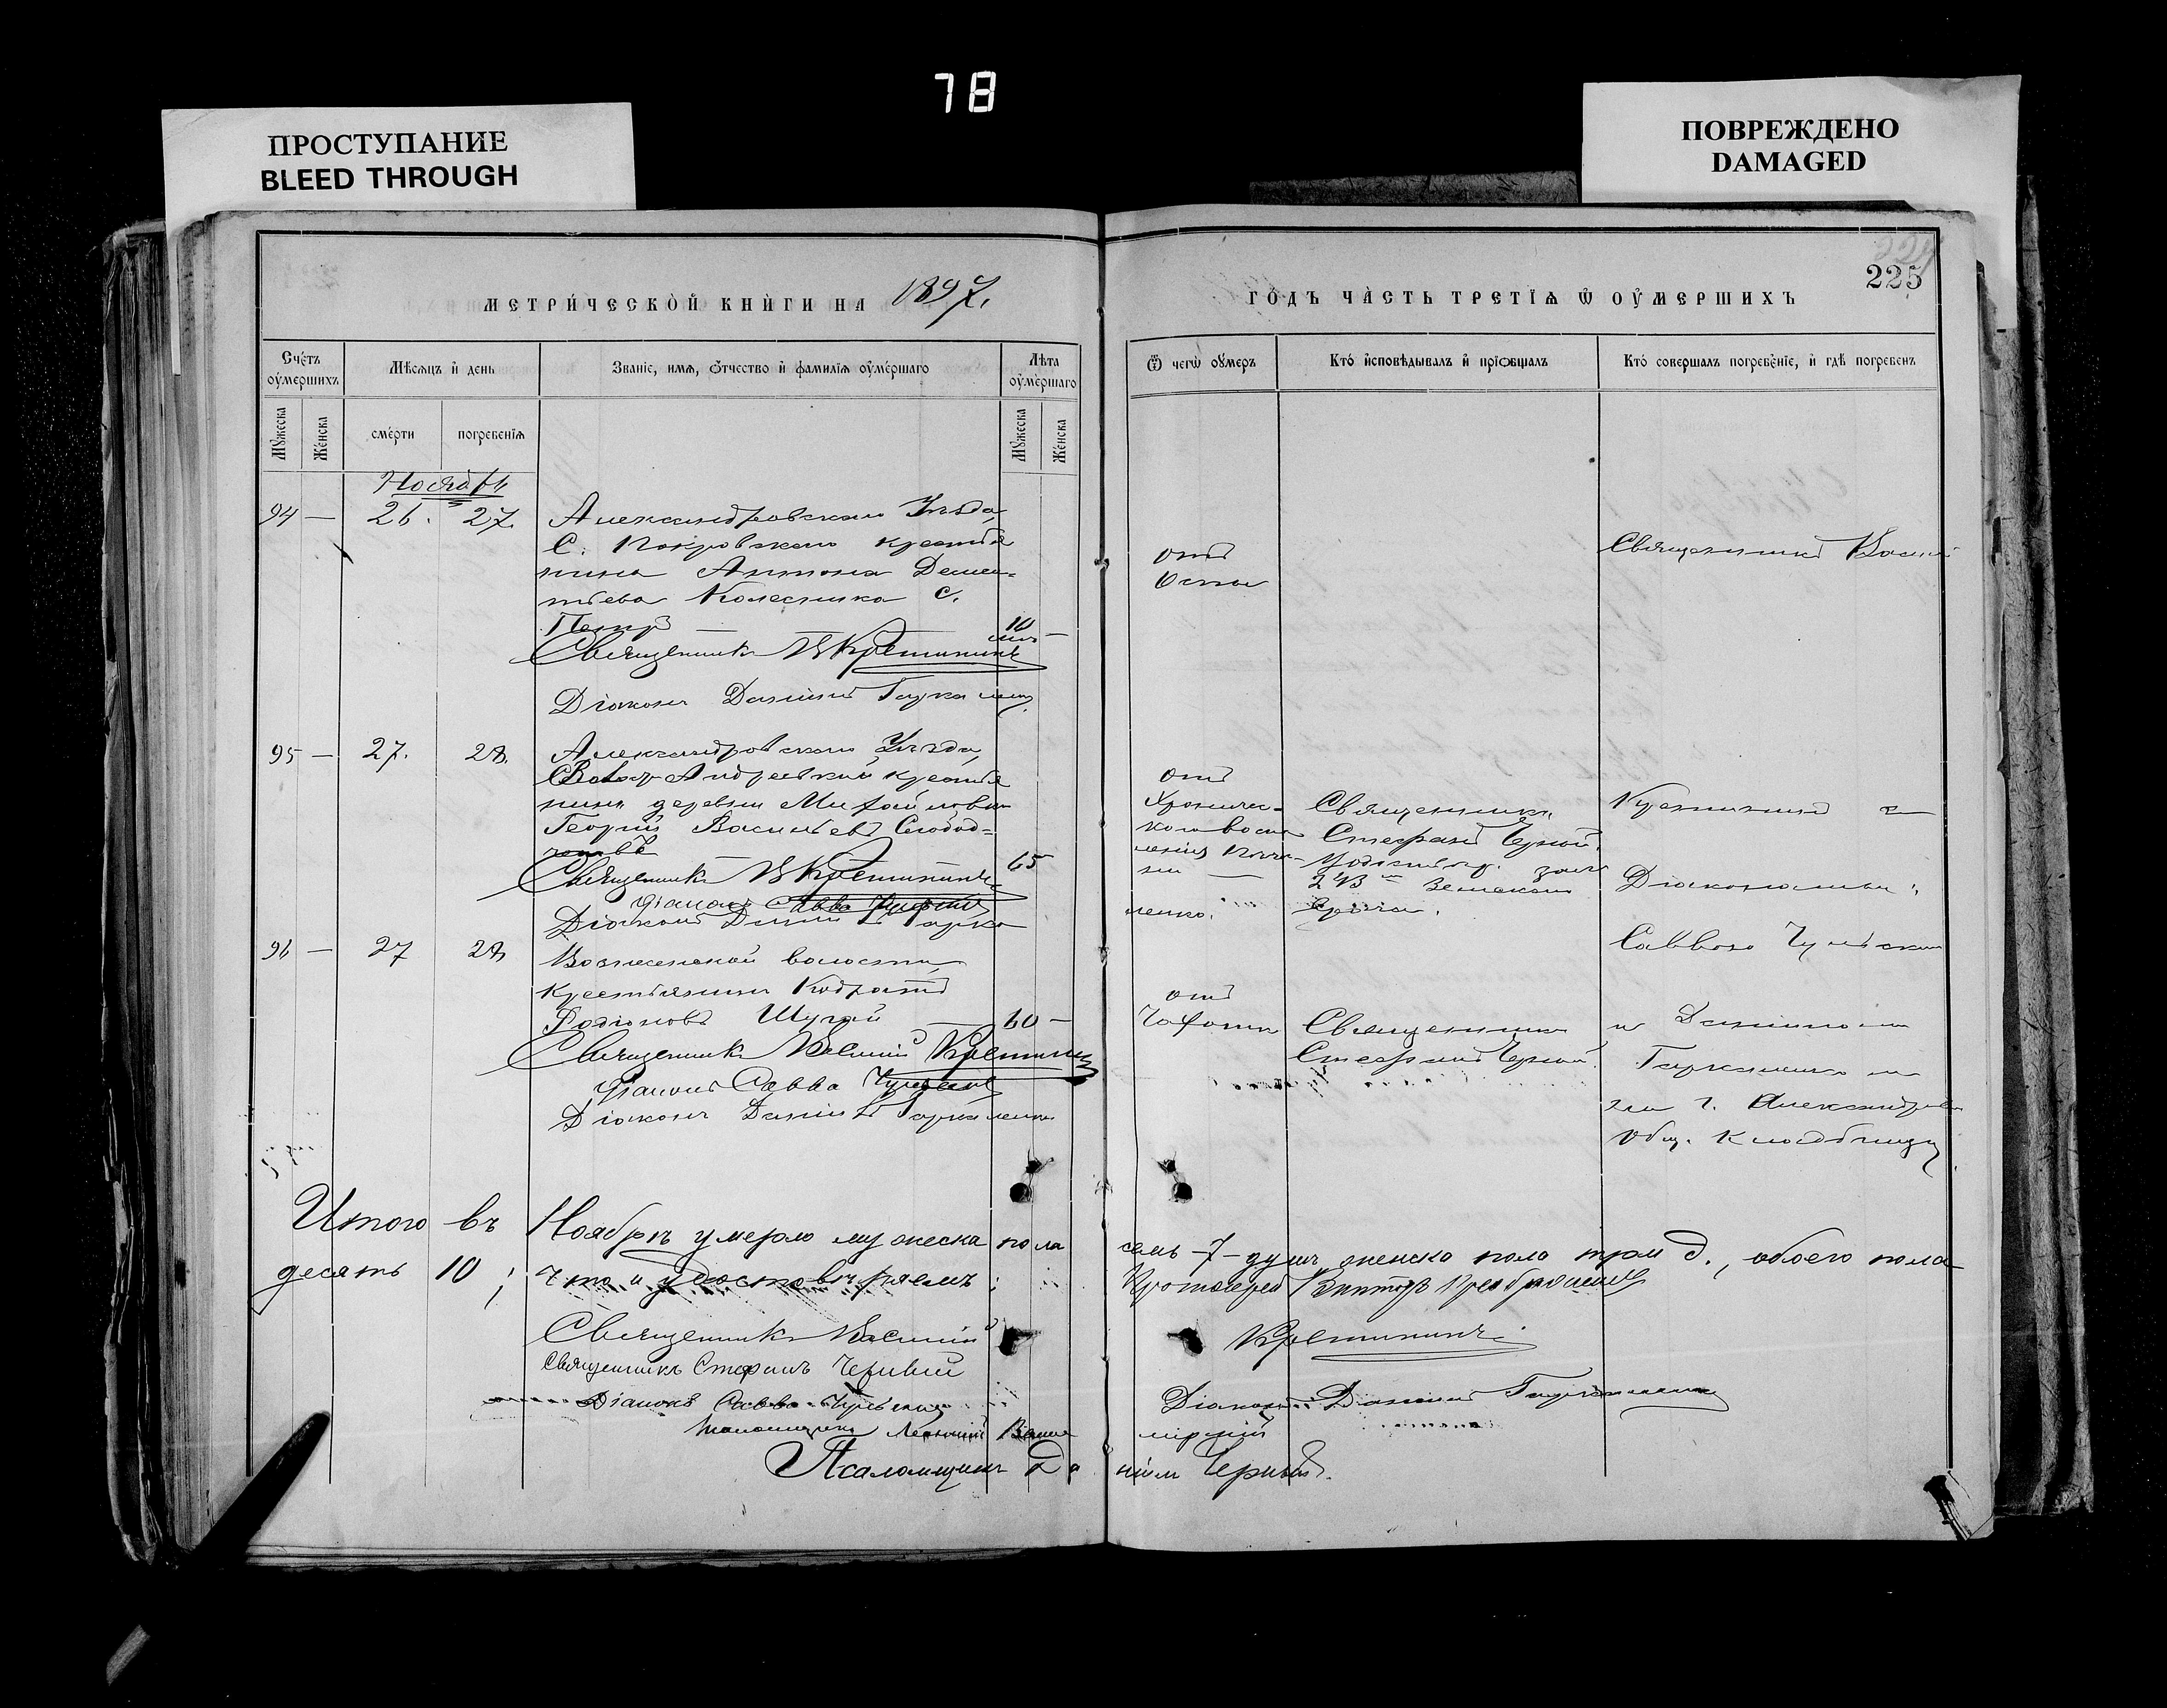 78
ПРОСТУПАНИЕ
BLEED THROUGH
ПОВРЕЖДЕНО
DAMAGED
225
МЕТРИ́ЧЕСКОЙ КНИ́ГИ НА 1897.
ГО́ДЪ ЧА́СТЬ ТРЕТЇѦ Ѿ ОУ҆МЕРШИХЪ
Сче́тъ оумершихъ
Мѣсѧцъ и҆ день
Званіе, имѧ, ѻ҆тчество и҆ фамилїѧ оу҆ме́ршаго
Лѣта оу҆ме́ршаго
Ѿ чегѡ̀ оу҆меръ
Кто̀ и҆сповѣ́дывалъ и҆ прїѡбщалъ
Кто̀ совершалъ погребе́нїе, и҆ гдѣ̀ погребенъ
Мꙋжеска
Же́нска
сме́рти
погребе́нїѧ
Мꙋжеска
Же́нска
Ноября
94 — 26. 27. Александровскаго Уѣзда,
С. Покровскаго крестья
нина Антона Демен-
тьева Колесника с.
Петръ — 10
Священникъ В Кретининъ
Діаконъ Даніилъ
отъ
Оспы
Священникъ Васил
95 — 27. 28. Александровскаго Уѣзда,
Андреевской крестья
нинъ деревни Михайловки
Георгій Васильевъ Слобод-
65
Священникъ В Кретининъ
Діаконъ Савва
Діаконъ Даніилъ Гарка
отъ
Хроничес-
каго воспа
ленія поче-
Священникъ
Стефанъ Черный.
Земскаго
Врача.
Кретининъ съ
Діаконами:
Саввою
96 — 27 28 Вознесенской волости,
крестьянинъ Кодратъ
Родіоновъ Шугай — 60 —
Священникъ Василій Кретининъ
Діаконъ Савва
Діаконъ Даніилъ Гаркаленко
отъ
Чахотки
Священникъ
Стефанъ Черный
и Даніиломъ
Гаркаленко на
г. Александров
Общ. кладбищѣ
Итого въ Ноябрѣ умерло мужеска пола семь –7– душъ женска пола три д., обоего пола
десять 10; что и удостовѣряемъ:
Протоіерей Викторъ
Священникъ Василій Кретининъ
Священникъ Стефанъ Черный
Діаконъ Савва
Діаконъ Даніилъ Гаркаленко
Псаломщикъ Даніилъ Черный.